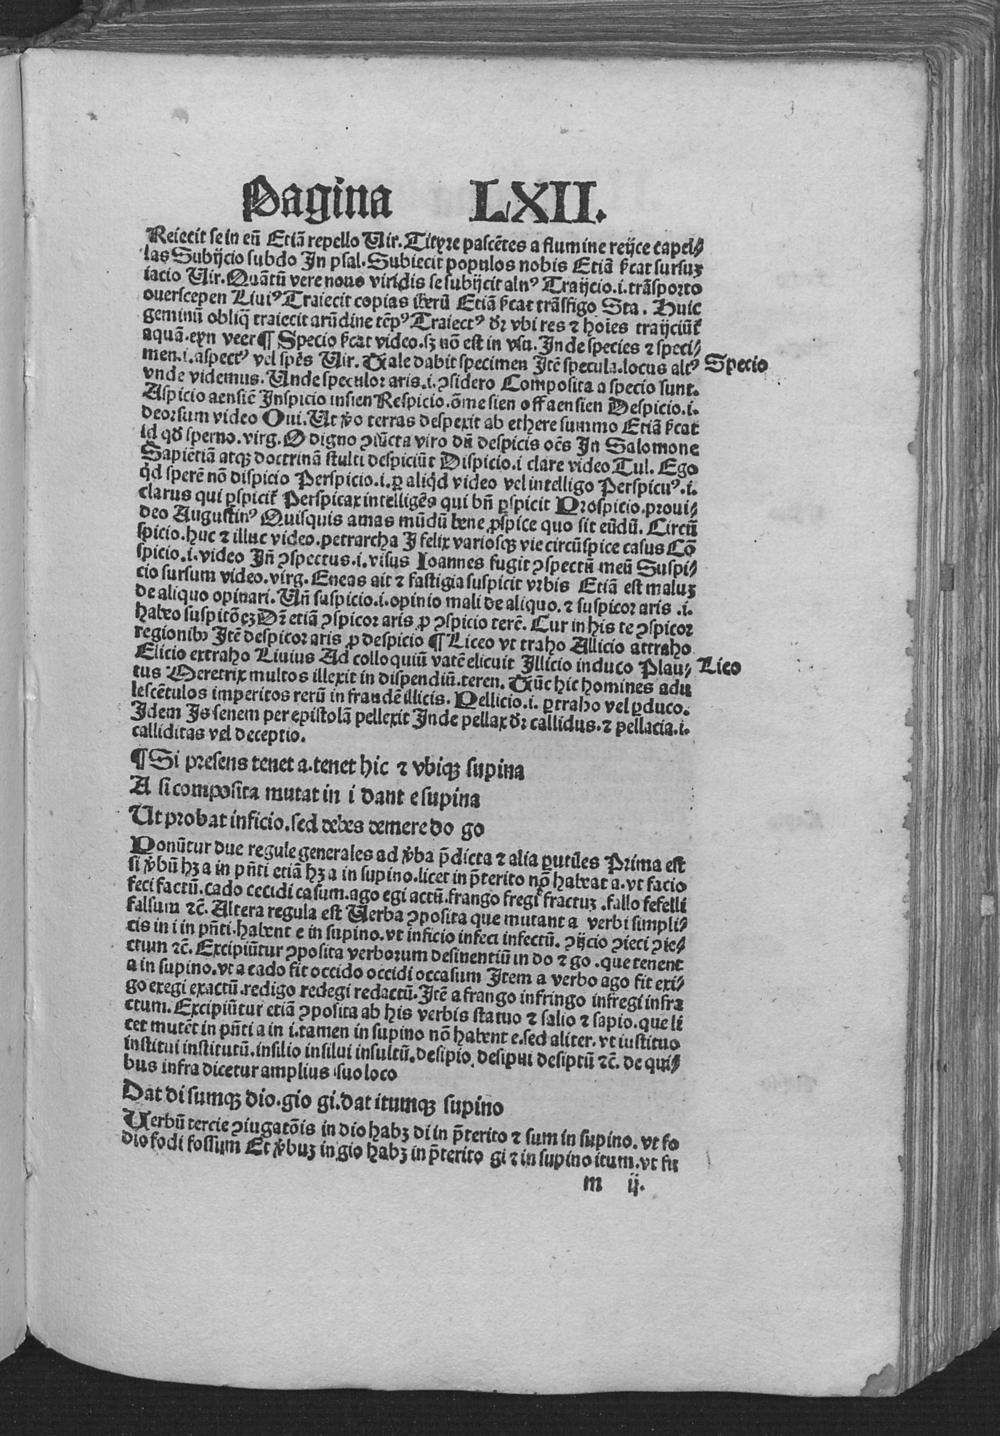 Pagina LXII.
Reiecit se in eū Etiā repello Uir. Tityre pascētes a flumine reijce capel⸗
las Subijcio subdo In psal. Subiecit populos nobis Etiā ſ̄cat sursuꝫ
iacio Uir. Quātū vere nouo viridis se subijcit alnꝰ Traijcio .i. trāsporto
ouerscepen Liuiꝰ Traiecit copias Etiā ſ̄cat trāsfigo Sta. Huic
geminū obliq̄ traiecit arūdine tēpꝰ Traiectꝰ dr̄ vbi res ⁊ hoīes traijciūt̄
aquā. eyn veer ¶ Specio ſ̄cat video. sꝫ nō est in vsu. Inde species ⁊ speci⸗
men .i. aspectꝰ vel spēs Uir. Uale dabit specimen Itē specula. locus altꝰ Specio
vnde videmus. Unde speculor aris .i. ꝯsidero Composita a specio sunt.
Aspicio aensiē Inspicio insien Respicio. ōmesien off aensien Despicio .i.
deorsum video Oui. Ut ꝟo terras despexit ab ethere summo Etiā ſ̄cat
id qd̄ sperno. virg. O digno ꝯiūcta viro dū despicis oēs In Salomone
Sapiētiā atqꝫ doctrinā stulti despiciūt Dispicio .i clare video Tul. Ego
qd̄ sperē nō dispicio Perspicio .i. ꝑ aliqd̄ video vel intelligo Perspicuꝰ .i.
clarus qui ꝑspicit̄ Perspicax intelligēs qui bn̄ ꝑspicit Prospicio. proui⸗
deo Augustinꝰ Quisquis amas mūdū bene ꝓspice quo sit eūdū. Circū
spicio. huc ⁊ illuc video. petrarcha I felix variosqꝫ vie circūspice casus Cō
spicio .i. video In̄ ꝯspectus .i. visus Ioannes fugit ꝯspectū meū Suspi⸗
cio sursum video. virg. Eneas ait ⁊ fastigia suspicit vrbis Etiā est maluꝫ
de aliquo opinari. Un̄ suspicio .i. opinio mali de aliquo. ⁊ suspicor aris .i.
habeo suspitōeꝫ Dr̄ etiā ꝯspicor aris ꝓ ꝯspicio terē. Cur in his te ꝯspicor
regionibꝫ Itē despicor aris ꝓ despicio ¶ Liceo vt traho Allicio attraho
Elicio extraho Liuius Ad colloquiū vatē elicuit Illicio induco Plau⸗ Lico
tus Meretrix multos illexit in dispendiū. teren. Nūc hic homines adu
lescētulos imperitos rerū in fraudē illicis. Pellicio .i. ꝑtraho vel ꝑduco.
Idem Is senem per epistolā pellexit Inde pellax dr̄ callidus. ⁊ pellacia .i.
calliditas vel deceptio.
¶ Si presens tenet a. tenet hic ⁊ vbiqꝫ supina
A si composita mutat in i dant e supina
Ut probat inficio. sed debes demere do go
Ponūtur due regule generales ad ꝟba p̄dicta ⁊ alia ꝑutiles Prima est
si ꝟbū hꝫ a in pn̄ti etiā hꝫ a in supino. licet in p̄terito nō habeat a. vt facio
feci factū. cado cecidi casum. ago egi actū. frango fregi fractuꝫ. fallo fefelli
falsum ⁊c̄. Altera regula est Uerba ꝯposita que mutant a verbi simpli⸗
cis in i in pn̄ti. habent e in supino. vt inficio infeci infectū. ꝯijcio ꝯieci ꝯie⸗
ctum ⁊c̄. Excipiūtur ꝯposita verborum desinentiū in do ⁊ go. que tenent
a in supino. vt a cado fit occido occidi occasum Item a verbo ago fit exi⸗
go exegi exactū. redigo redegi redactū. Itē a frango infringo infregi infra
ctum. Excipiūtur etiā ꝯposita ab his verbis statuo ⁊ salio ⁊ sapio. que li
cet mutēt in pn̄ti a in i. tamen in supino nō habent e. sed aliter. vt instituo
institui institutū. insilio insilui insultū. desipio. desipui desiptū ⁊c̄. de qui⸗
bus infra dicetur amplius suo loco
Dat di sumqꝫ dio. gio gi. dat itumqꝫ supino
Uerbū tercie ꝯiugatōis in dio habꝫ di in p̄terito ⁊ sum in supino. vt fo
dio fodi fossum Et ꝟbuꝫ in gio habꝫ in p̄terito gi ⁊ in supino itum. vt fu
m ij.